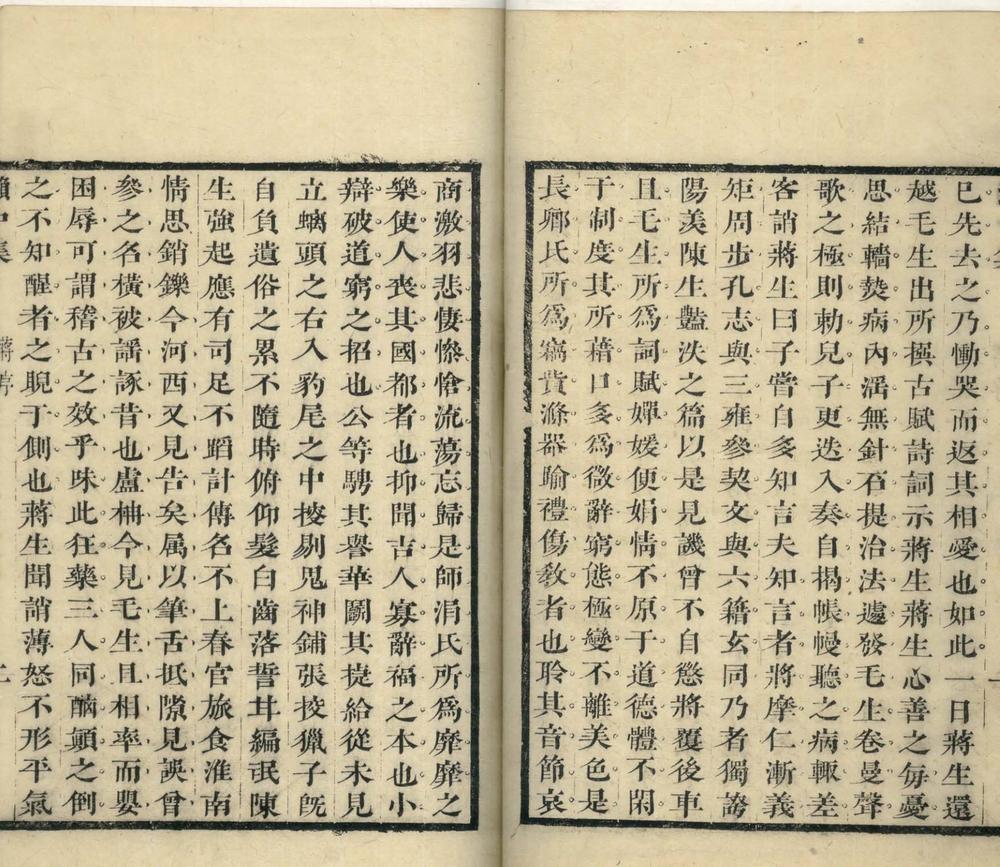 已先去之乃慟哭而返其相愛也如此一日蔣生還
越毛生出所撰古賦詩詞示蔣生蔣生心善之每憂
思結轖㷊病內溍無針石提治法遽發毛生卷曼聲
歌之極則勅兒子更迭入奏自揭帳幔聽之病輒差
客誚蔣生曰子嘗自多知言夫知言者將摩仁漸義
矩周步孔志與三雍參契文與六籍玄同乃者獨謭
陽羨陳生豔泆之篇以是見譏曾不自懲將覆後車
且毛生所為詞賦嬋媛便娟情不原于道德體不閑
于制度其所藉口多為微辭窮態極變不離美色是
長卿氏所為竊貲滌器踰禮傷教者也聆其音節哀
商激羽悲悽慘愴流蕩忘歸是師涓氏所為靡靡之
樂使人喪其國都者也抑聞吉人寡辭福之本也小
辯破道窮之招也公等騁其譽華圖其捷給從未見
立螭頭之右入豹尾之中摉剔鬼神鋪張挍獵子既
自負遺俗之累不隨時俯仰髮白齒落誓甘編氓陳
生強起應有司足不蹈計傳名不上春官旅食淮南
情思銷鑠今河西又見告矣屬以筆舌抵隙見誤曾
參之名橫被謡諑昔也盧柟今見毛生且相率而嬰
困辱可謂稽古之效乎昧此狂藥三人同酗顛之倒
之不知醒者之睨于側也蔣生聞誚薄怒不形平氣